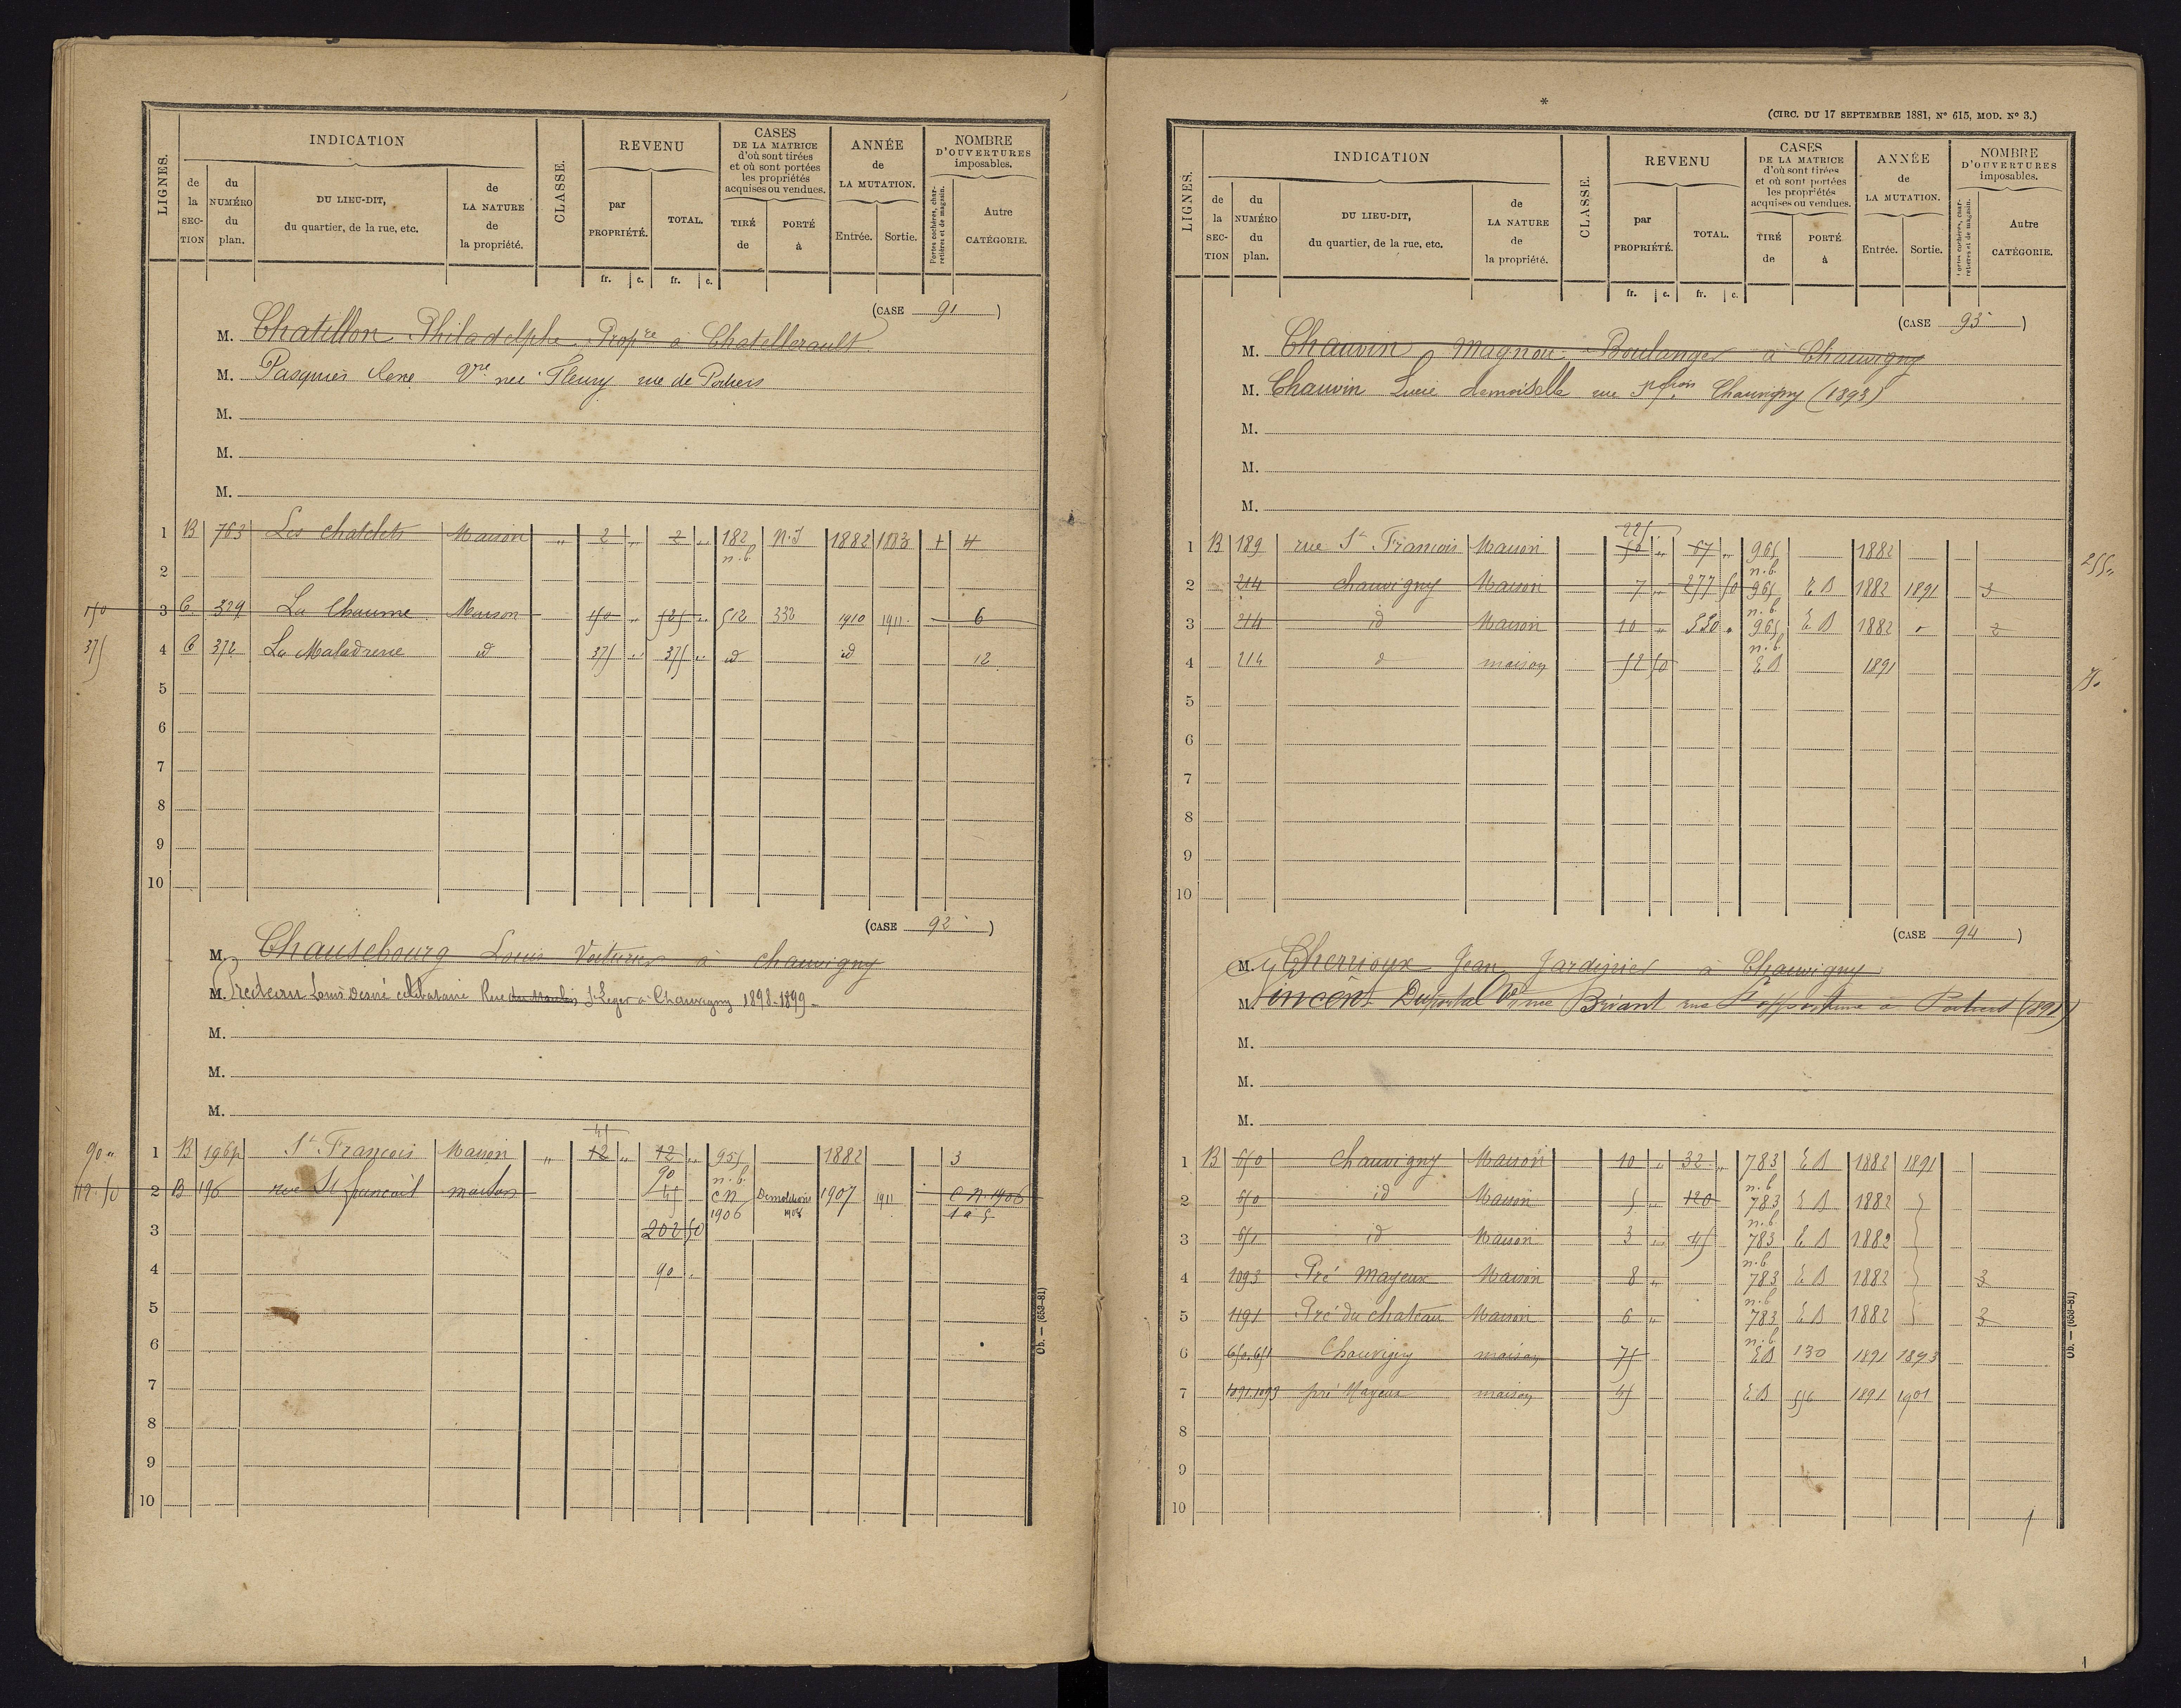 LIGNES.
INDICATION
de la SECTION
du NUMÉRO du plan.
DU LIEU-DIT, du quartier, de la rue, etc.
de LA NATURE de la propriété.
CLASSE.
REVENU
par PROPRIÉTÉ.
TOTAL.
fr. c. fr. c.
CASES DE LA MATRICE d'où sont tirées et où sont portées les propriétés acquises ou vendues.
TIRÉ de
PORTÉ à
ANNÉE de LA MUTATION.
Entrée. Sortie.
NOMBRE D'OUVERTURES imposables.
Portes cochères, charretières et de magasin.
Autre CATÉGORIE.
(CASE 91)
M. Chatillon Philadelphe Propre à Chatellerault
M. Pasquier René Vve née Fleury rue de Poitiers
M.
M.
M.
1 B 763 Les chatelets Maison " 2 " 2 " 182 n.b. N.I 1882 1883 1 4
2
150 3 C 329 La Chaume Maison 150 " 525 " 512 332 1910 1911 6
375 4 C 372 La Maladrerie id 375 " 375 " id id 12
5
6
7
8
9
10
(CASE 92)
M. Chausebourg Louis Voiturier à chauvigny
M. Louis Desiré célibataire Rue du Moulin St Leger à Chauvigny 1898-1899
M.
M.
M.
45
90 " 1 B 196p St François Maison " 12 " 12 " 955 n.b. 1882 3
90
112.50 2 B 196 rue St françois maison 45 C N 1906 Demolitions 1908 1907 1911 C N 1906 1 à 5
3 202 50
4 90 "
5
6
7
8
9
10
Ob. — (653-81)
*
(CIRC. DU 17 SEPTEMBRE 1881, N° 615, MOD. N° 3.)
LIGNES.
INDICATION
de la SECTION
du NUMÉRO du plan.
DU LIEU-DIT, du quartier, de la rue, etc.
de LA NATURE de la propriété.
CLASSE.
REVENU
par PROPRIÉTÉ.
TOTAL.
fr. c. fr. c.
CASES DE LA MATRICE d'où sont tirées et où sont portées les propriétés acquises ou vendues.
TIRÉ de
PORTÉ à
ANNÉE de LA MUTATION.
Entrée. Sortie.
NOMBRE D'OUVERTURES imposables.
Portes cochères, charretières et de magasin.
Autre CATÉGORIE.
(CASE 93)
M. Chauvin Magnou Boulanger à Chauvigny
M. Chauvin Lucie demoiselle rue St frois Chauvigny (1893)
M.
M.
M.
225
1 B 189 rue St François Maison 50 " 67 " 965 n.b. 1882 255 "
2 214 chauvigny Maison 7 " 277 50 965 n.b. E B 1882 1891 3
3 214 id Maison 10 " 330 " 965 n.b. E B 1882 " 2
4 214 d maison 52 50 E B 1891
5
6
7
8
9
10
(CASE 94)
M. Cherrioux Jean Jardinier à Chauvigny
M. Vincent Duportal Vve née Briant rue Ste opportune à Poitiers (1891)
M.
M.
M.
1 B 650 Chauvigny Maison 10 " 32 " 783 n.b. E B 1882 1891
2 650 id Maison 5 " 120 783 n.b. E B 1882
3 651 id Maison 3 " 45 783 n.b E B 1882
4 1093 Pré Mayeux Maison 8 " 783 n.b E B 1882 3
5 1191 Pré du chateau Maison 6 " 783 n.b E B 1882 3
6 650.651 Chauvigny maison 75 E B 130 1891 1893
7 1091.1093 pré Mayeux maison 45 E B 556 1891 1901
8
9
10
Ob. — (653-81)